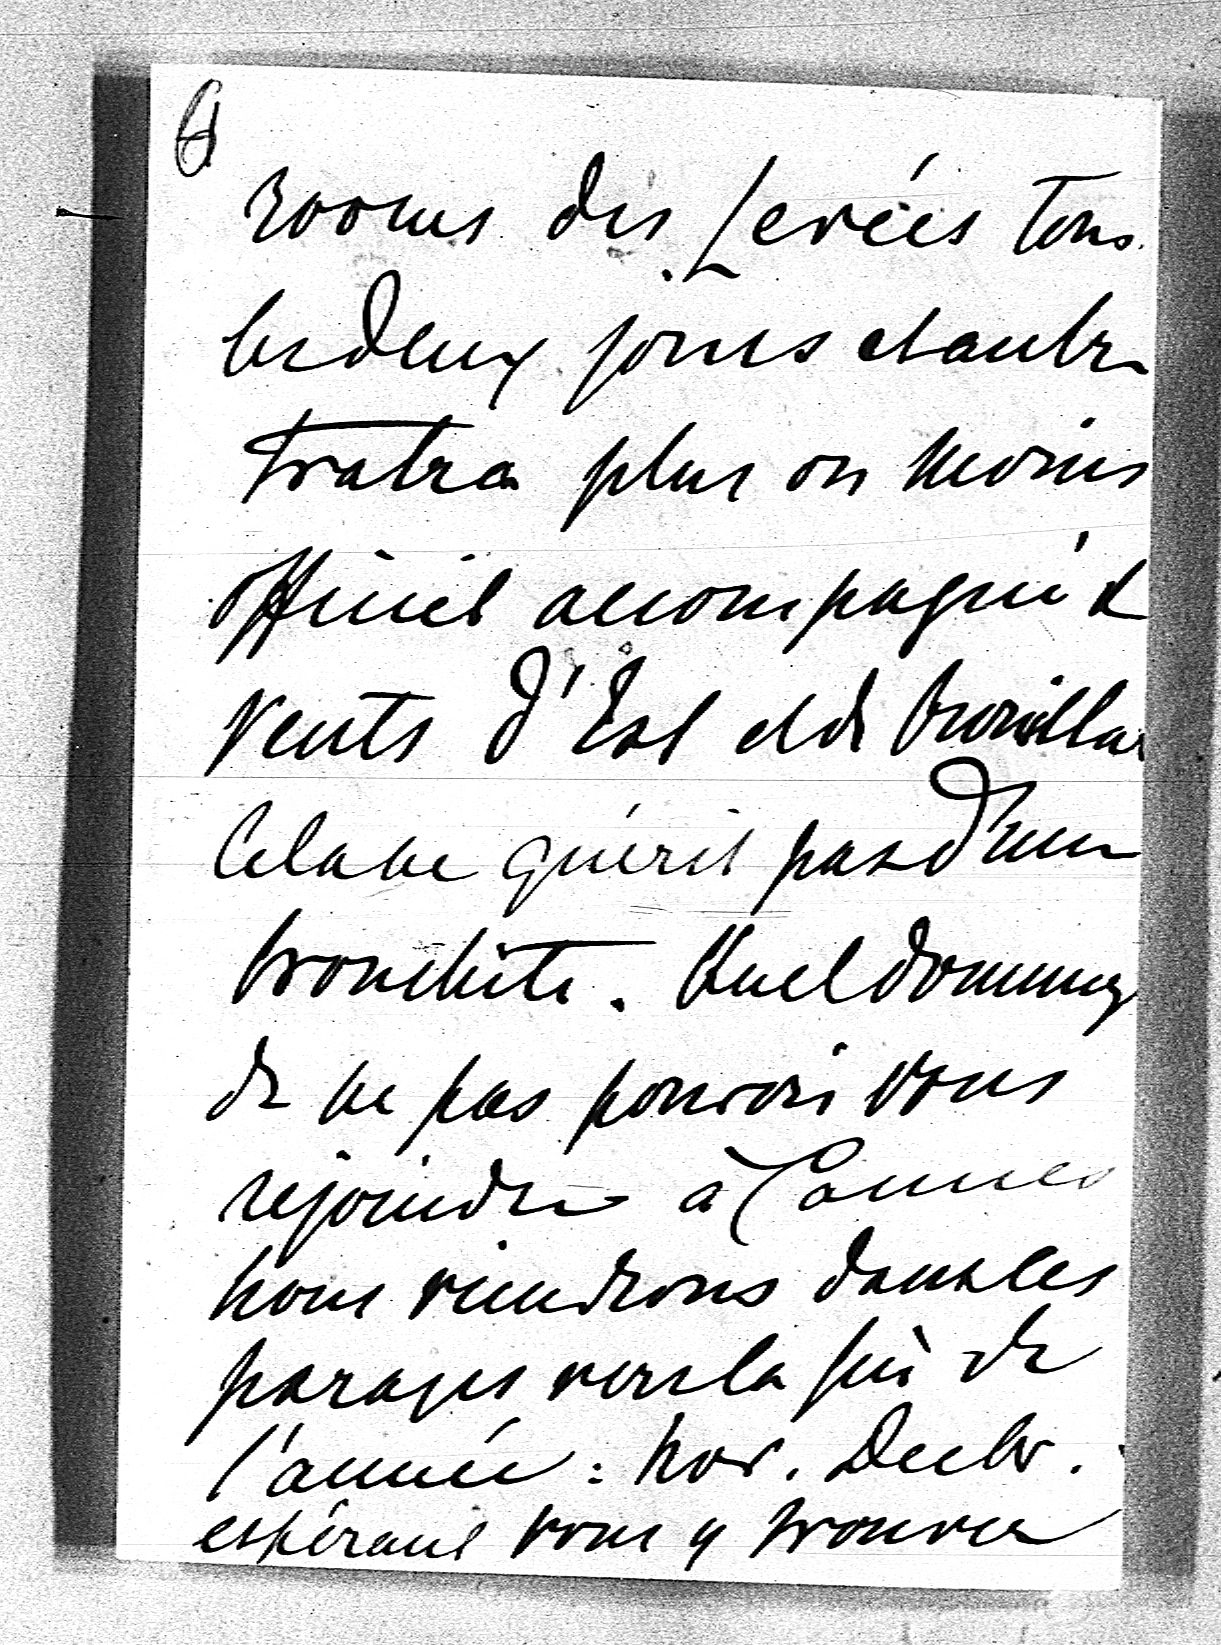 6
rooms des Levées tous
les deux jours et autre
tratra plus ou moins
officiel accompagné de
vents d'Est et de brouillar
Cela ne guérit pas d'une
bronchite. Quel dommage
de ne pas pouvoir vous
rejoindre à Cannes
nous viendrons dans les
parages vers la fin de
l'année : Nov. Decbr.
espérant vous y trouver